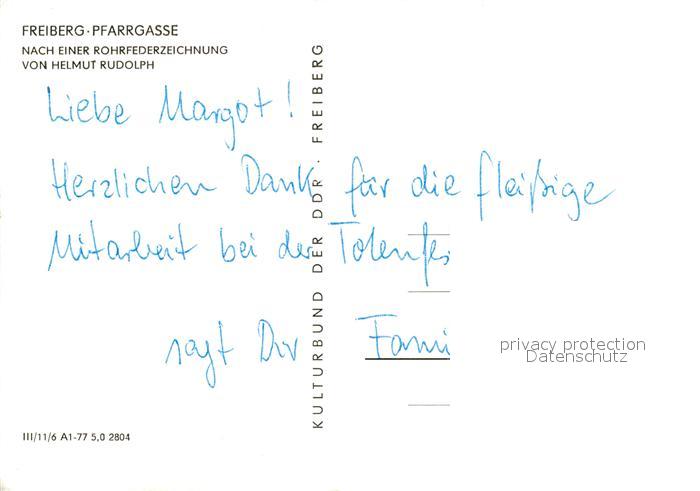 FREIBERG · PFARRGASSE
NACH EINER ROHRFEDERZEICHNUNG
VON HELMUT RUDOLPH
Liebe Margot!
Herzlichen Dank für die fleißige
Mitarbeit bei der
sagt Dir Fami
KULTURBUND DER DDR · FREIBERG
privacy protection
Datenschutz
III/11/6 A1-77 5,0 2804